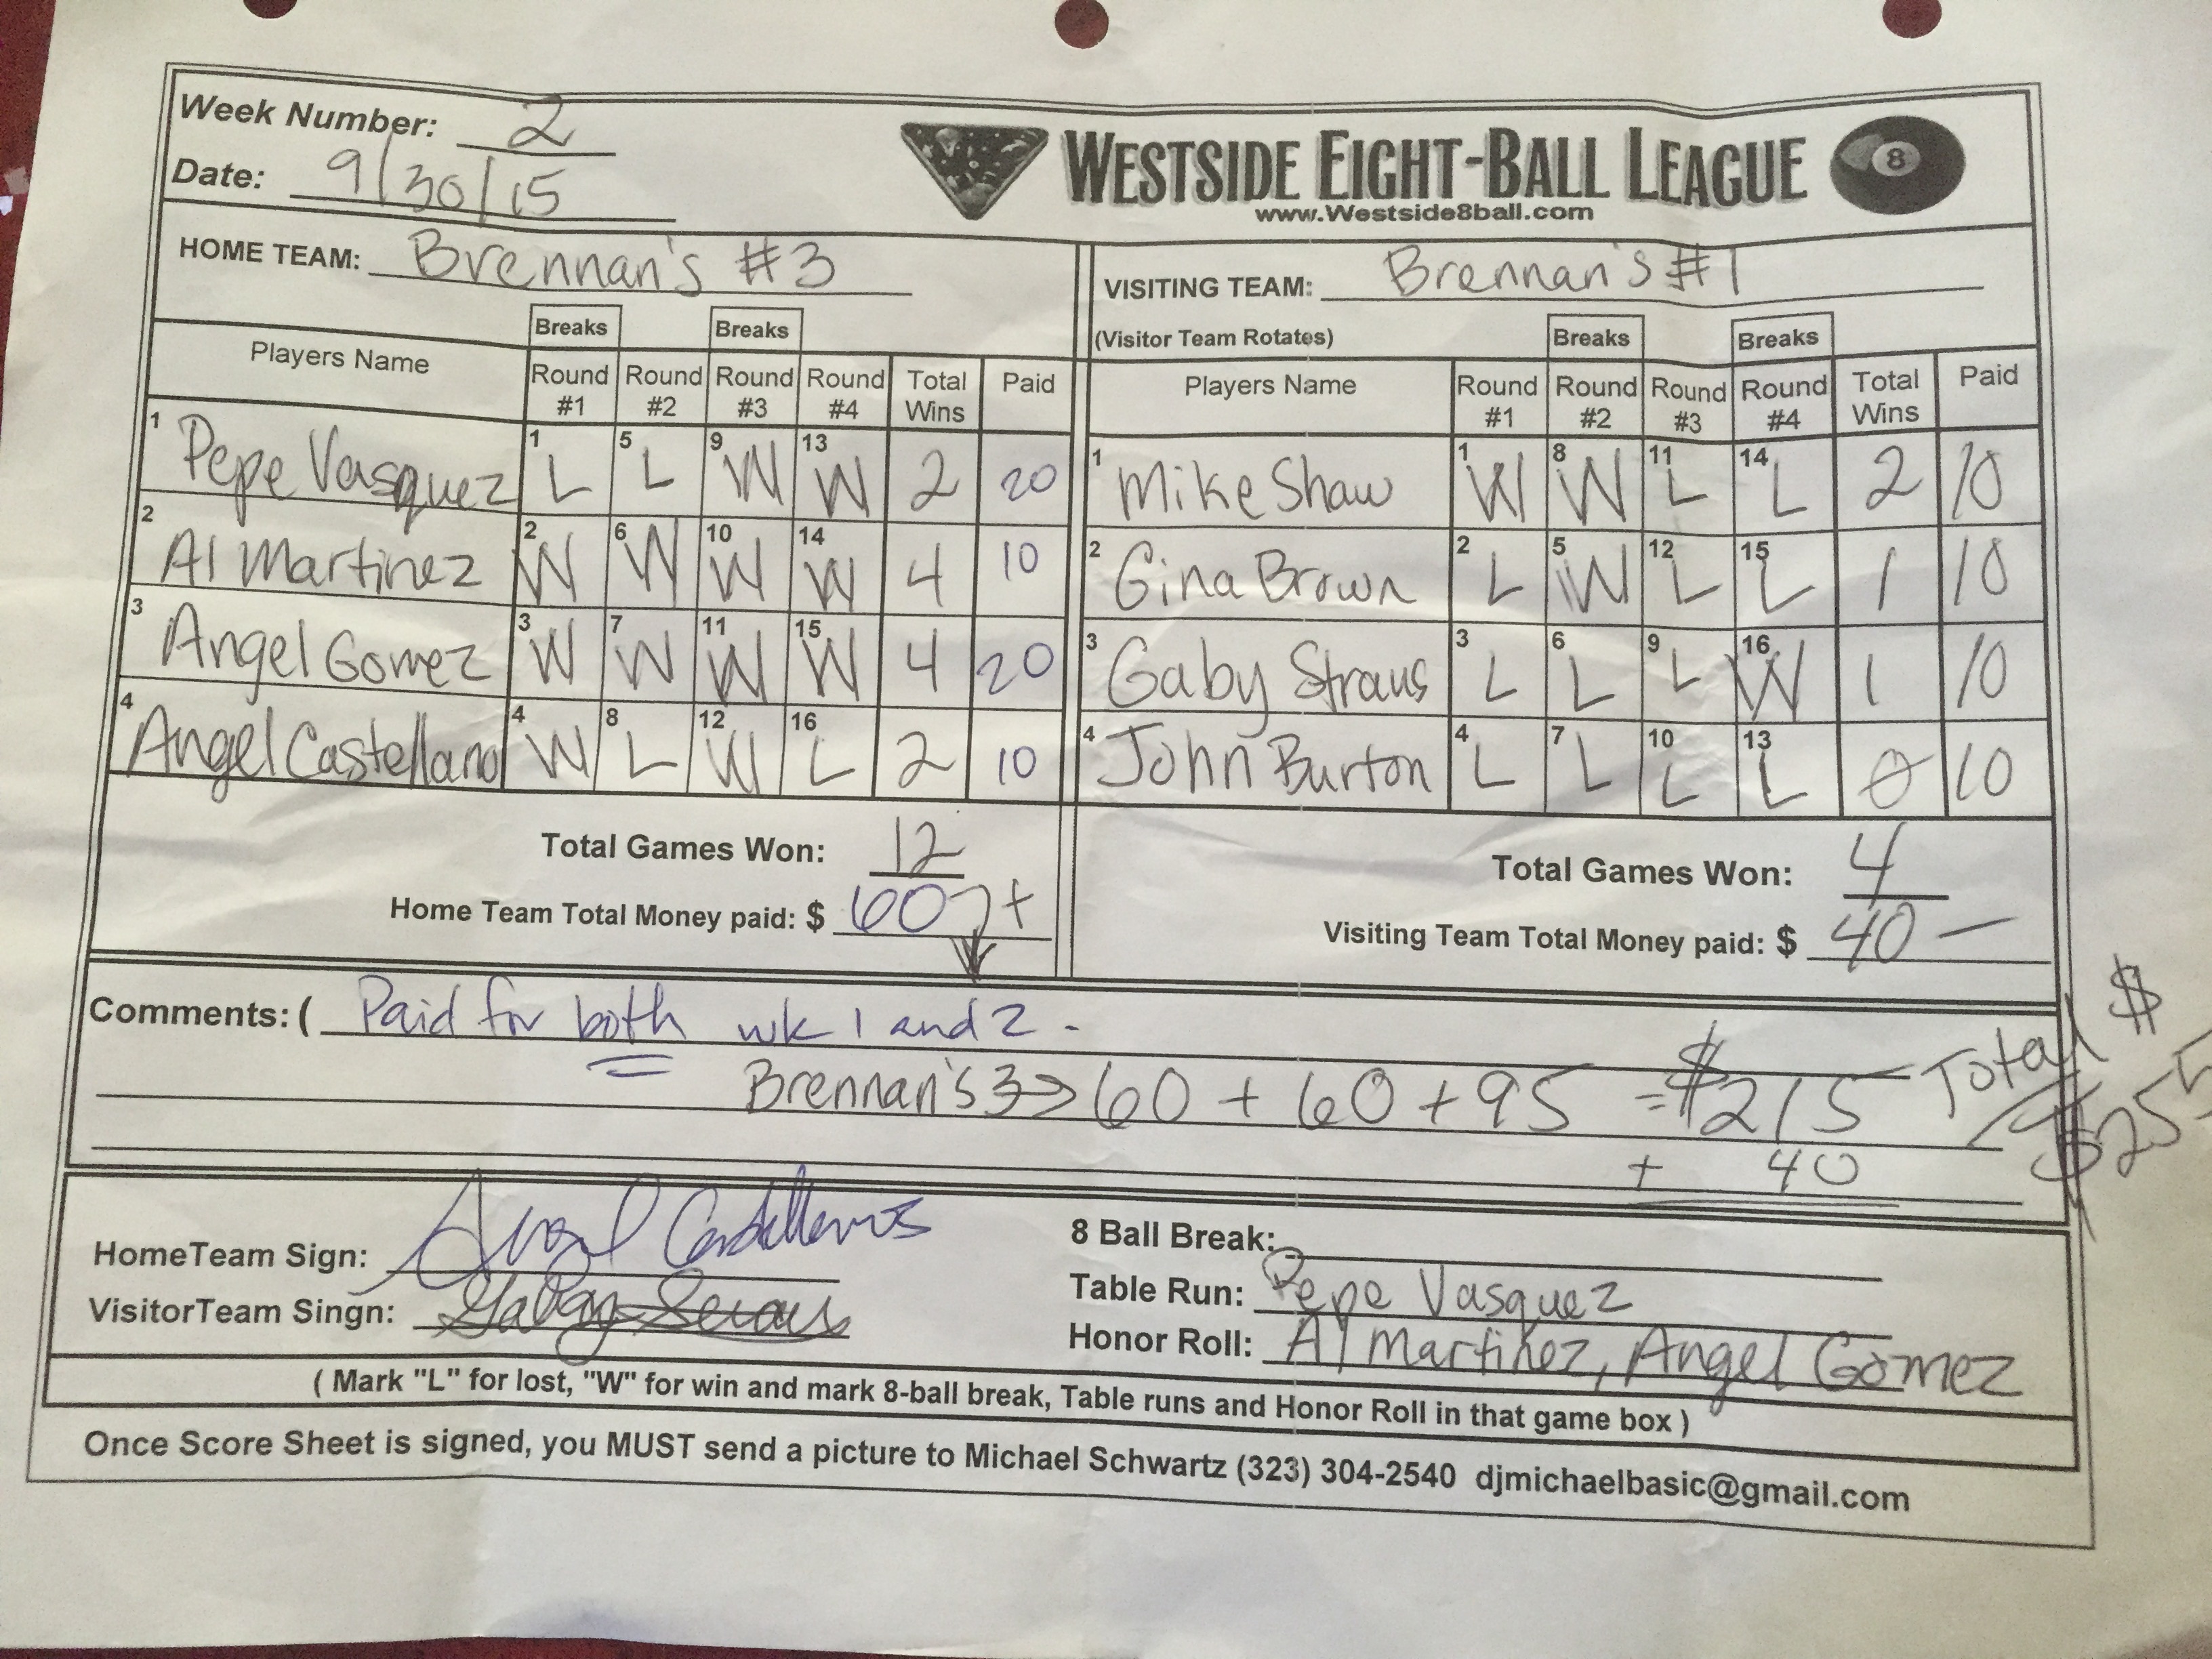 Week Number: 2
Date: 9/30/15
WESTSIDE EIGHT-BALL LEAGUE 8
www.Westside8ball.com
HOME TEAM: Brennan's #3
VISITING TEAM: Brennan's #1
Breaks Breaks
(Visitor Team Rotates) Breaks Breaks
Players Name Round #1 Round #2 Round #3 Round #4 Total Wins Paid
1 Pepe Vasquez 1 L 5 L 9 W 13 W 2 20
2 Al Martinez 2 W 6 W 10 W 14 W 4 10
3 Angel Gomez 3 W 7 W 11 W 15 W 4 20
4 Angel Castellano 4 W 8 L 12 W 16 L 2 10
Total Games Won: 12
Home Team Total Money paid: $ 60 +
Players Name Round #1 Round #2 Round #3 Round #4 Total Wins Paid
1 Mike Shaw 1 W 8 W 11 L 14 L 2 10
2 Gina Brown 2 L 5 W 12 L 15 L 1 10
3 Gaby Straus 3 L 6 L 9 L 16 W 1 10
4 John Burton 4 L 7 L 10 L 13 L 0 10
Total Games Won: 4
Visiting Team Total Money paid: $ 40 —
Comments: ( Paid for both wk 1 and 2 -
Brennan's 3 → 60 + 60 + 95 = $215 Total $
+ 40 $255
HomeTeam Sign: Angel Castellanos
VisitorTeam Singn: Gaby
8 Ball Break:
Table Run: Pepe Vasquez
Honor Roll: Al Martinez, Angel Gomez
( Mark "L" for lost, "W" for win and mark 8-ball break, Table runs and Honor Roll in that game box )
Once Score Sheet is signed, you MUST send a picture to Michael Schwartz (323) 304-2540 djmichaelbasic@gmail.com